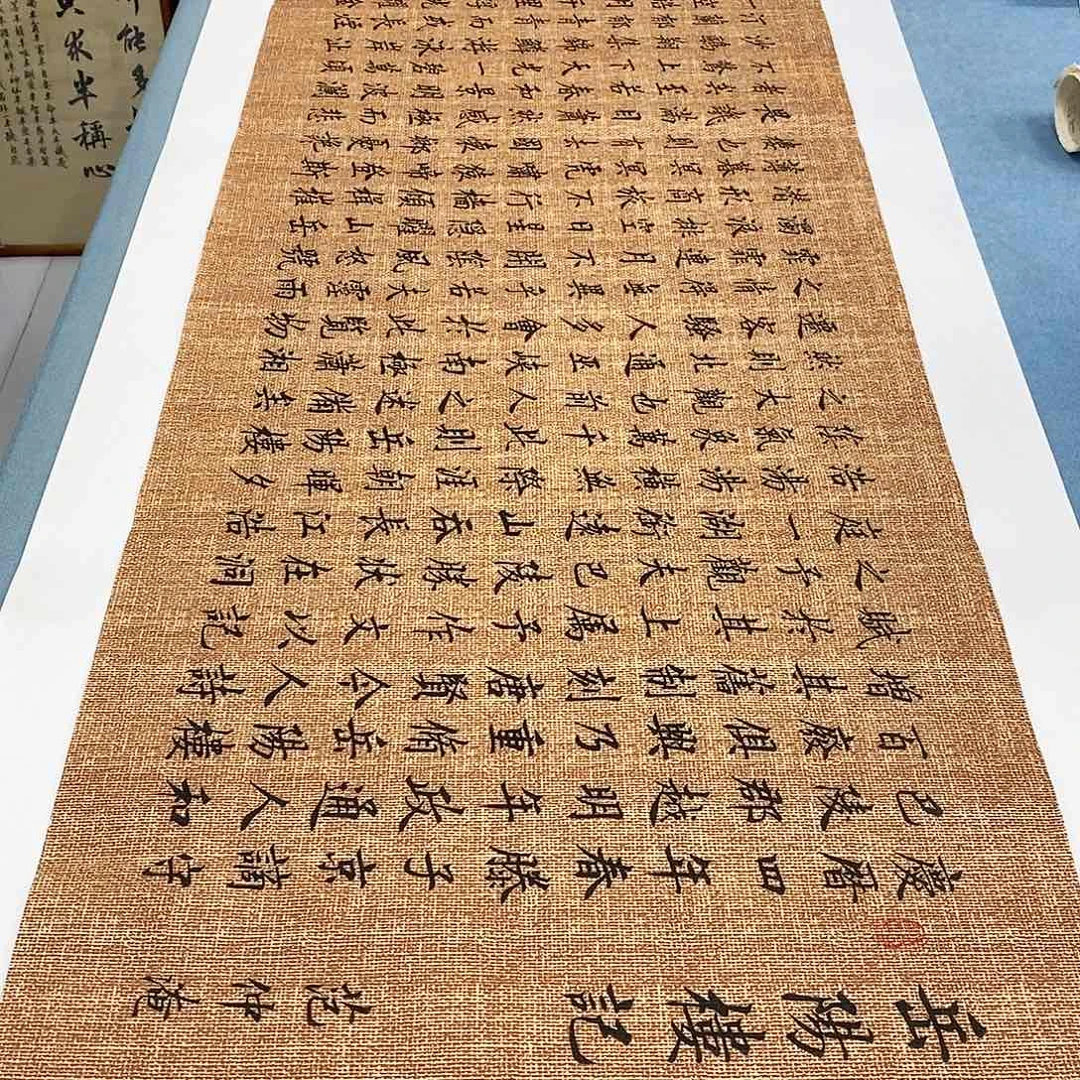 岳陽樓記
范仲淹
慶曆四年春滕子京謫守
巴陵郡越明年政通人和
百廢俱興乃重脩岳陽樓
增其舊制刻唐賢今人詩
賦於其上屬予作文以記
之予觀夫巴陵勝狀在洞
庭一湖銜遠山吞長江浩
浩湯湯橫無際涯朝暉夕
陰氣象萬千此則岳陽樓
之大觀也前人之述備矣
然則北通巫峽南極瀟湘
遷客騷人多會於此覽物
之情得無異乎若夫霪雨
霏霏連月不開陰風怒號
濁浪排空日星隱耀山岳
潛形商旅不行檣傾楫摧
薄暮冥冥虎嘯猿啼登斯
樓也則有去國懷鄉憂讒
畏譏滿目蕭然感極而悲
者矣至若春和景明波瀾
不驚上下天光一碧萬頃
沙鷗翔集錦鱗游泳岸芷
汀蘭郁郁青青而或長煙
求半稱心